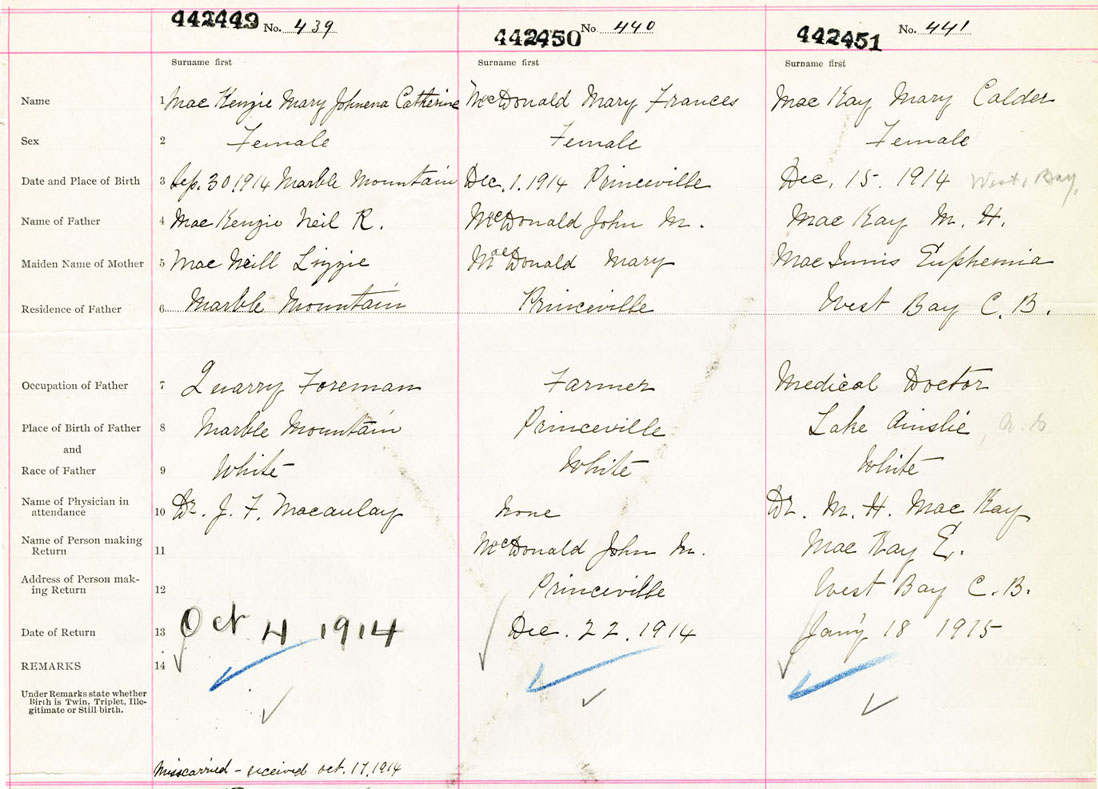 442449 No. 439
442450 No 440
442451 No. 441
Surname first Surname first Surname first
Name 1 MacKenzie Mary Johnena Catherine McDonald Mary Frances MacKay Mary Calder
Sex 2 Female Female Female
Date and Place of Birth 3 Sep. 30 1914 Marble Mountain Dec. 1. 1914 Princeville Dec. 15. 1914 West, Bay,
Name of Father 4 MacKenzie Neil R. McDonald John M. MacKay M. H.
Maiden Name of Mother 5 MacNeill Lizzie MacDonald Mary MacInnis Euphemia
Residence of Father 6 Marble Mountain Princeville West Bay C. B.
Occupation of Father 7 Quarry Foreman Farmer Medical Doctor
Place of Birth of Father 8 Marble Mountain Princeville Lake Ainslie
and
Race of Father 9 White White White
Name of Physician in
attendance 10 Dr. J. F. Macaulay none Dr. M. H. MacKay
Name of Person making
Return 11 McDonald John M. MacKay E.
Address of Person mak-
ing Return 12 Princeville West Bay C. B.
Date of Return 13 Oct 4 1914 Dec. 22. 1914 Jan'y 18 1915
REMARKS 14
Under Remarks state whether
Birth is Twin, Triplet, Ille-
gitimate or Still birth.
Miscarried - received oct. 17, 1914